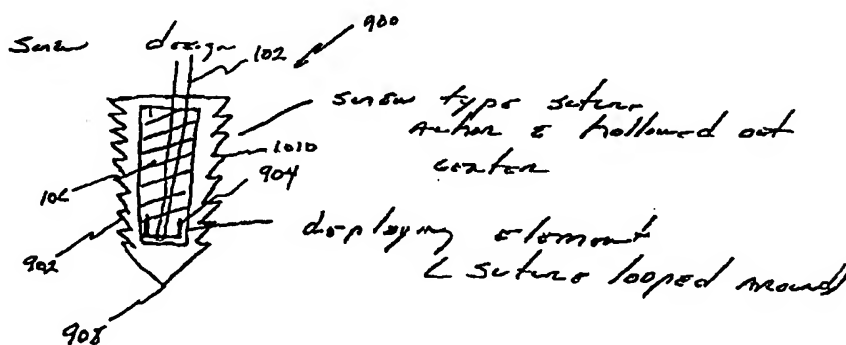 screw design
102
900
screw type suture
Anchor c hollowed out
center
1010
904
106
902
deploying element
c suture looped around
908